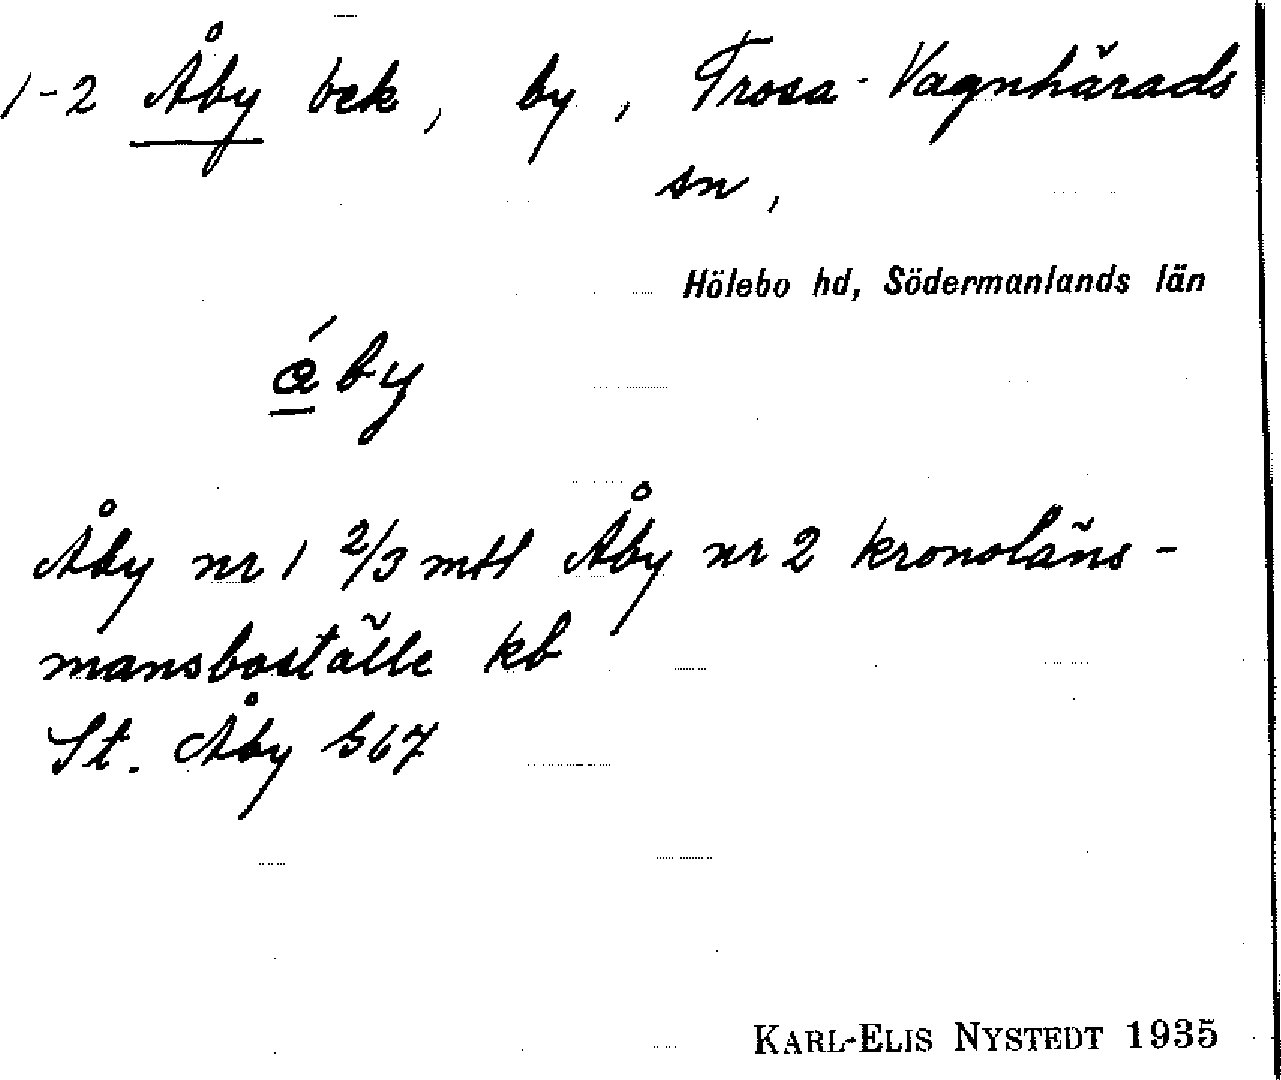 1-2 Åby bek, by, Trosa-Vagnhärads
sn,
Hölebo hd, Södermanlands län
á̱by
Åby nr 1 2/3 mtl Åby nr 2 kronoläns-
mansboställe kb
St. Åby S67
KARL-ELIS NYSTEDT 1935